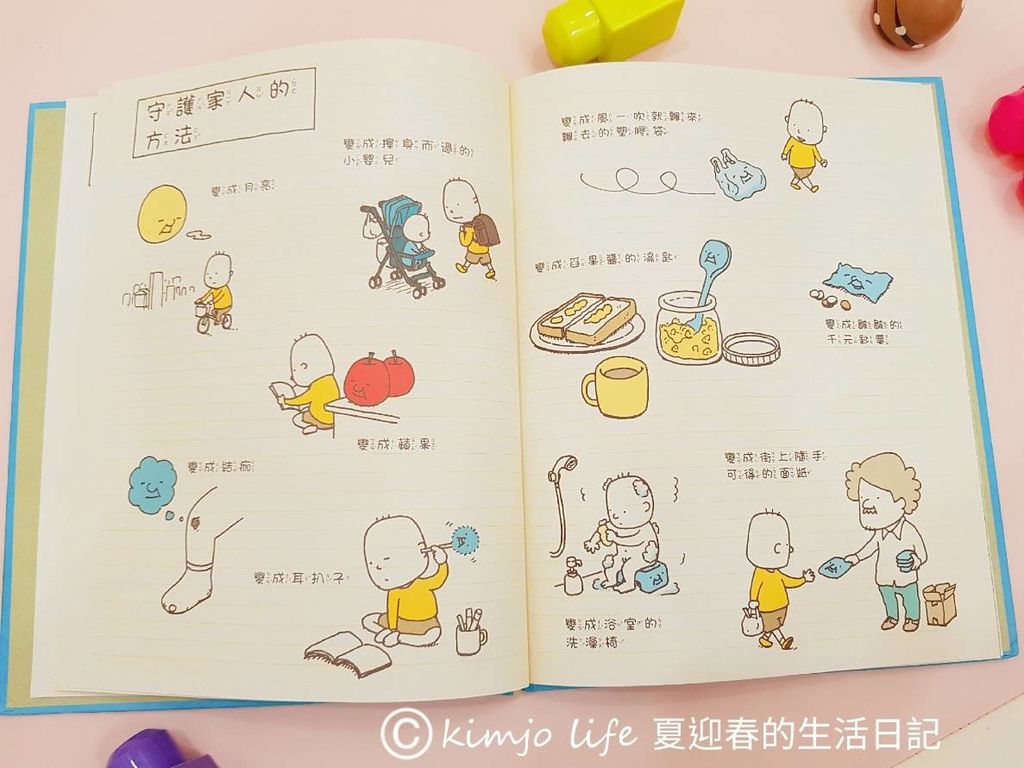 守護家人的
方法
變成擦身而過的
小嬰兒
變成月亮
變成蘋果
變成結痂
變成耳扒子
變成風一吹就飄來
飄去的塑膠袋
變成舀果醬的湯匙
變成皺皺的
千元鈔票
變成街上隨手
可得的面紙
變成浴室的
洗澡椅
© kimjo life 夏迎春的生活日記